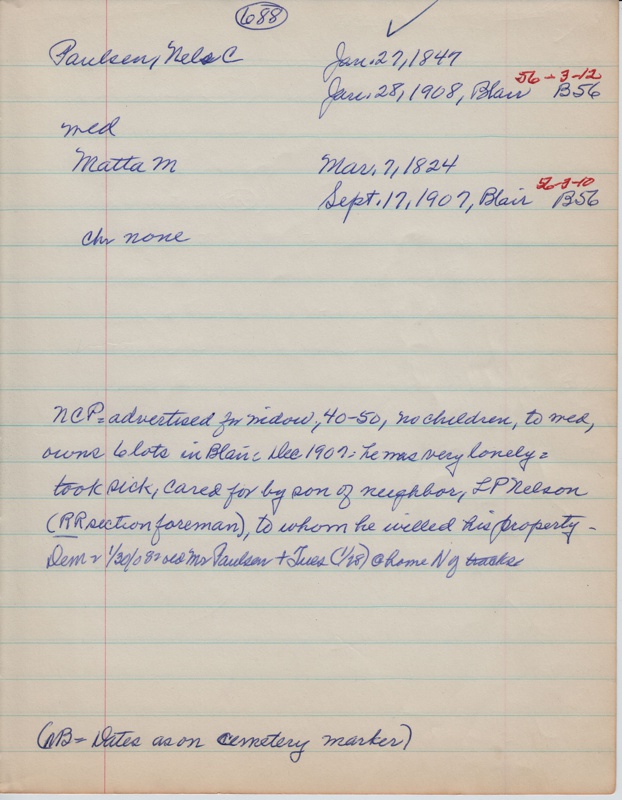 688
Paulsen, Nels C Jan. 27, 1847
56-3-12
Jan. 28, 1908, Blair B56
med
Matta M Mar. 7, 1824
56-3-10
Sept. 17, 1907, Blair B56
chr none
NCP = advertised for widow, 40-50, no children, to wed,
owns 6 lots in Blair = Dec 1907 = he was very lonely =
took sick, cared for by son of neighbor, LP Nelson
(RR section foreman), to whom he willed his property -
Dem = 1/30/08 = old Mr Paulsen + Tues (1/28) @ home N of tracks
(NB = Dates as on cemetery marker)